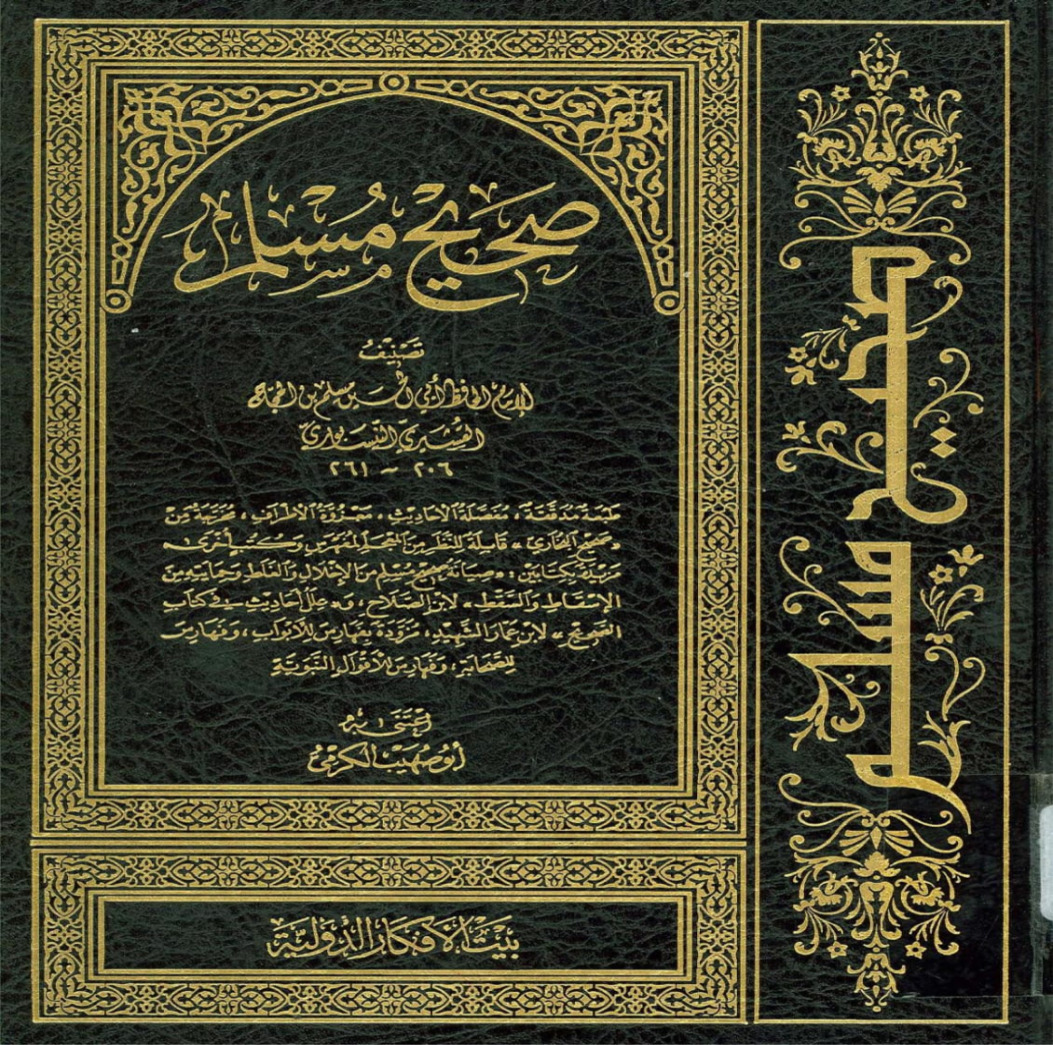 صَحِيْح مُسْلِم
تَصْنِيْفُ
الإمام الحافظ أبي الحسين مسلم بن الحجاج
القشيري النيسابوري
٢٠٦ ~ ٢٦١
طبعة مدققة، مفصلة الأحاديث، معزوة الأطراف، مخرجة من
«صحيح البخاري» قابلة للنظر من المعجم المفهرس وكتب أخرى،
مزيلة بكتابين: «صيانة صحيح مسلم من الإخلال والغلط وحمايته من
الإسقاط والسقط» لابن الصلاح، و«علل أحاديث في كتاب
الصحيح» لابن عمار الشهيد، مزودة بفهارس للأبواب، وفهارس
للصحابة، وفهارس للأقوال النبوية
اعتنى به
أبو صهيب الكرمي
بيت الأفكار الدولية
صحيح مسلم